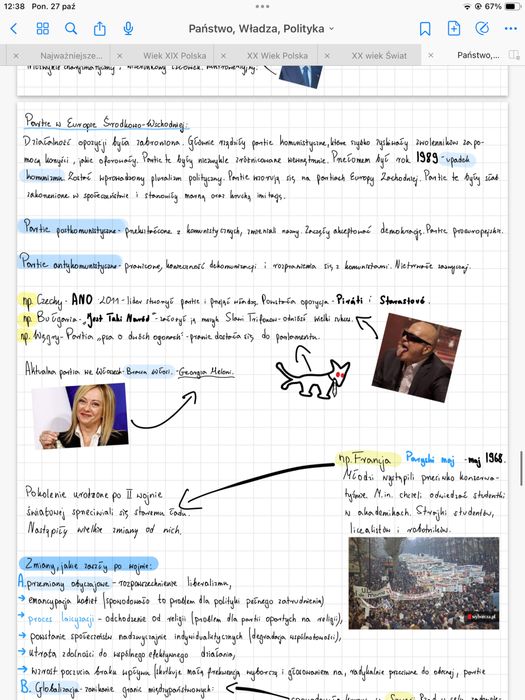 12:38 Pon. 27 paź
67%
Państwo, Władza, Polityka
Najważniejsze...
Wiek XIX Polska
XX Wiek Polska
XX wiek Świat
Państwo,...
Partie w Europie Środkowo-Wschodniej:
Działalność opozycji była zabroniona. Głównie rządziły partie komunistyczne, które szybko zyskiwały zwolenników za po-
mocą korzyści, jakie oferowały. Partie te były niezwykle zróżnicowane wewnętrznie. Przełomem był rok 1989 - upadek
komunizmu. Został wprowadzony pluralizm polityczny. Partie wzorują się na partiach Europy Zachodniej. Partie te były słabo
zakorzenione w społeczeństwie i stanowiły marną oraz kruchą imitację.
Partie postkomunistyczne - przekształcone z komunistycznych, zmieniali nazwy. Zaczęły akceptować demokrację. Partie proeuropejskie.
Partie antykomunistyczne - prawicowe, konieczność dekomunizacji i rozprawienia się z komunistami. Nietrwałe zazwyczaj.
np. Czechy - ANO 2011 - lider stworzył partię i przejął władzę. Powstała opozycja - Piráti i Starostové.
np. Bułgaria - "Jest Taki Naród" - założył ją muzyk Sławi Trifonow - odniósł wielki sukces.
np. Węgry - Partia „psa o dwóch ogonach" - prawie dostała się do parlamentu.
Aktualna partia we Włoszech - Bracia Włosi. - Georgia Meloni.
np. Francja Paryski maj - maj 1968.
Młodzi wystąpili przeciwko konserwa-
tyzmie. M.in. chcieli odwiedzać studentki
w akademikach. Strajki studentów,
licealistów i robotników.
Pokolenie urodzone po II wojnie
światowej sprzeciwiali się staremu ładu.
Nastąpiły wielkie zmiany od nich.
wyborcza.pl
Zmiany, jakie zaszły po wojnie:
A. przemiany obyczajowe - rozpowszechnienie liberalizmu,
→ emancypacja kobiet (spowodowało to problem dla polityki pełnego zatrudnienia)
→ proces laicyzacji - odchodzenie od religii (problem dla partii opartych na religii),
→ powstanie społeczeństw nadzwyczajnie indywidualistycznych (degradacja wspólnotowości),
→ utrata zdolności do wspólnego efektywnego działania,
→ wzrost poczucia braku wpływu (skutkuje małą frekwencją wyborczą i głosowaniem na, radykalnie przeciwne do obecnej, partie
B. Globalizacja - zanikanie granic międzypaństwowych: